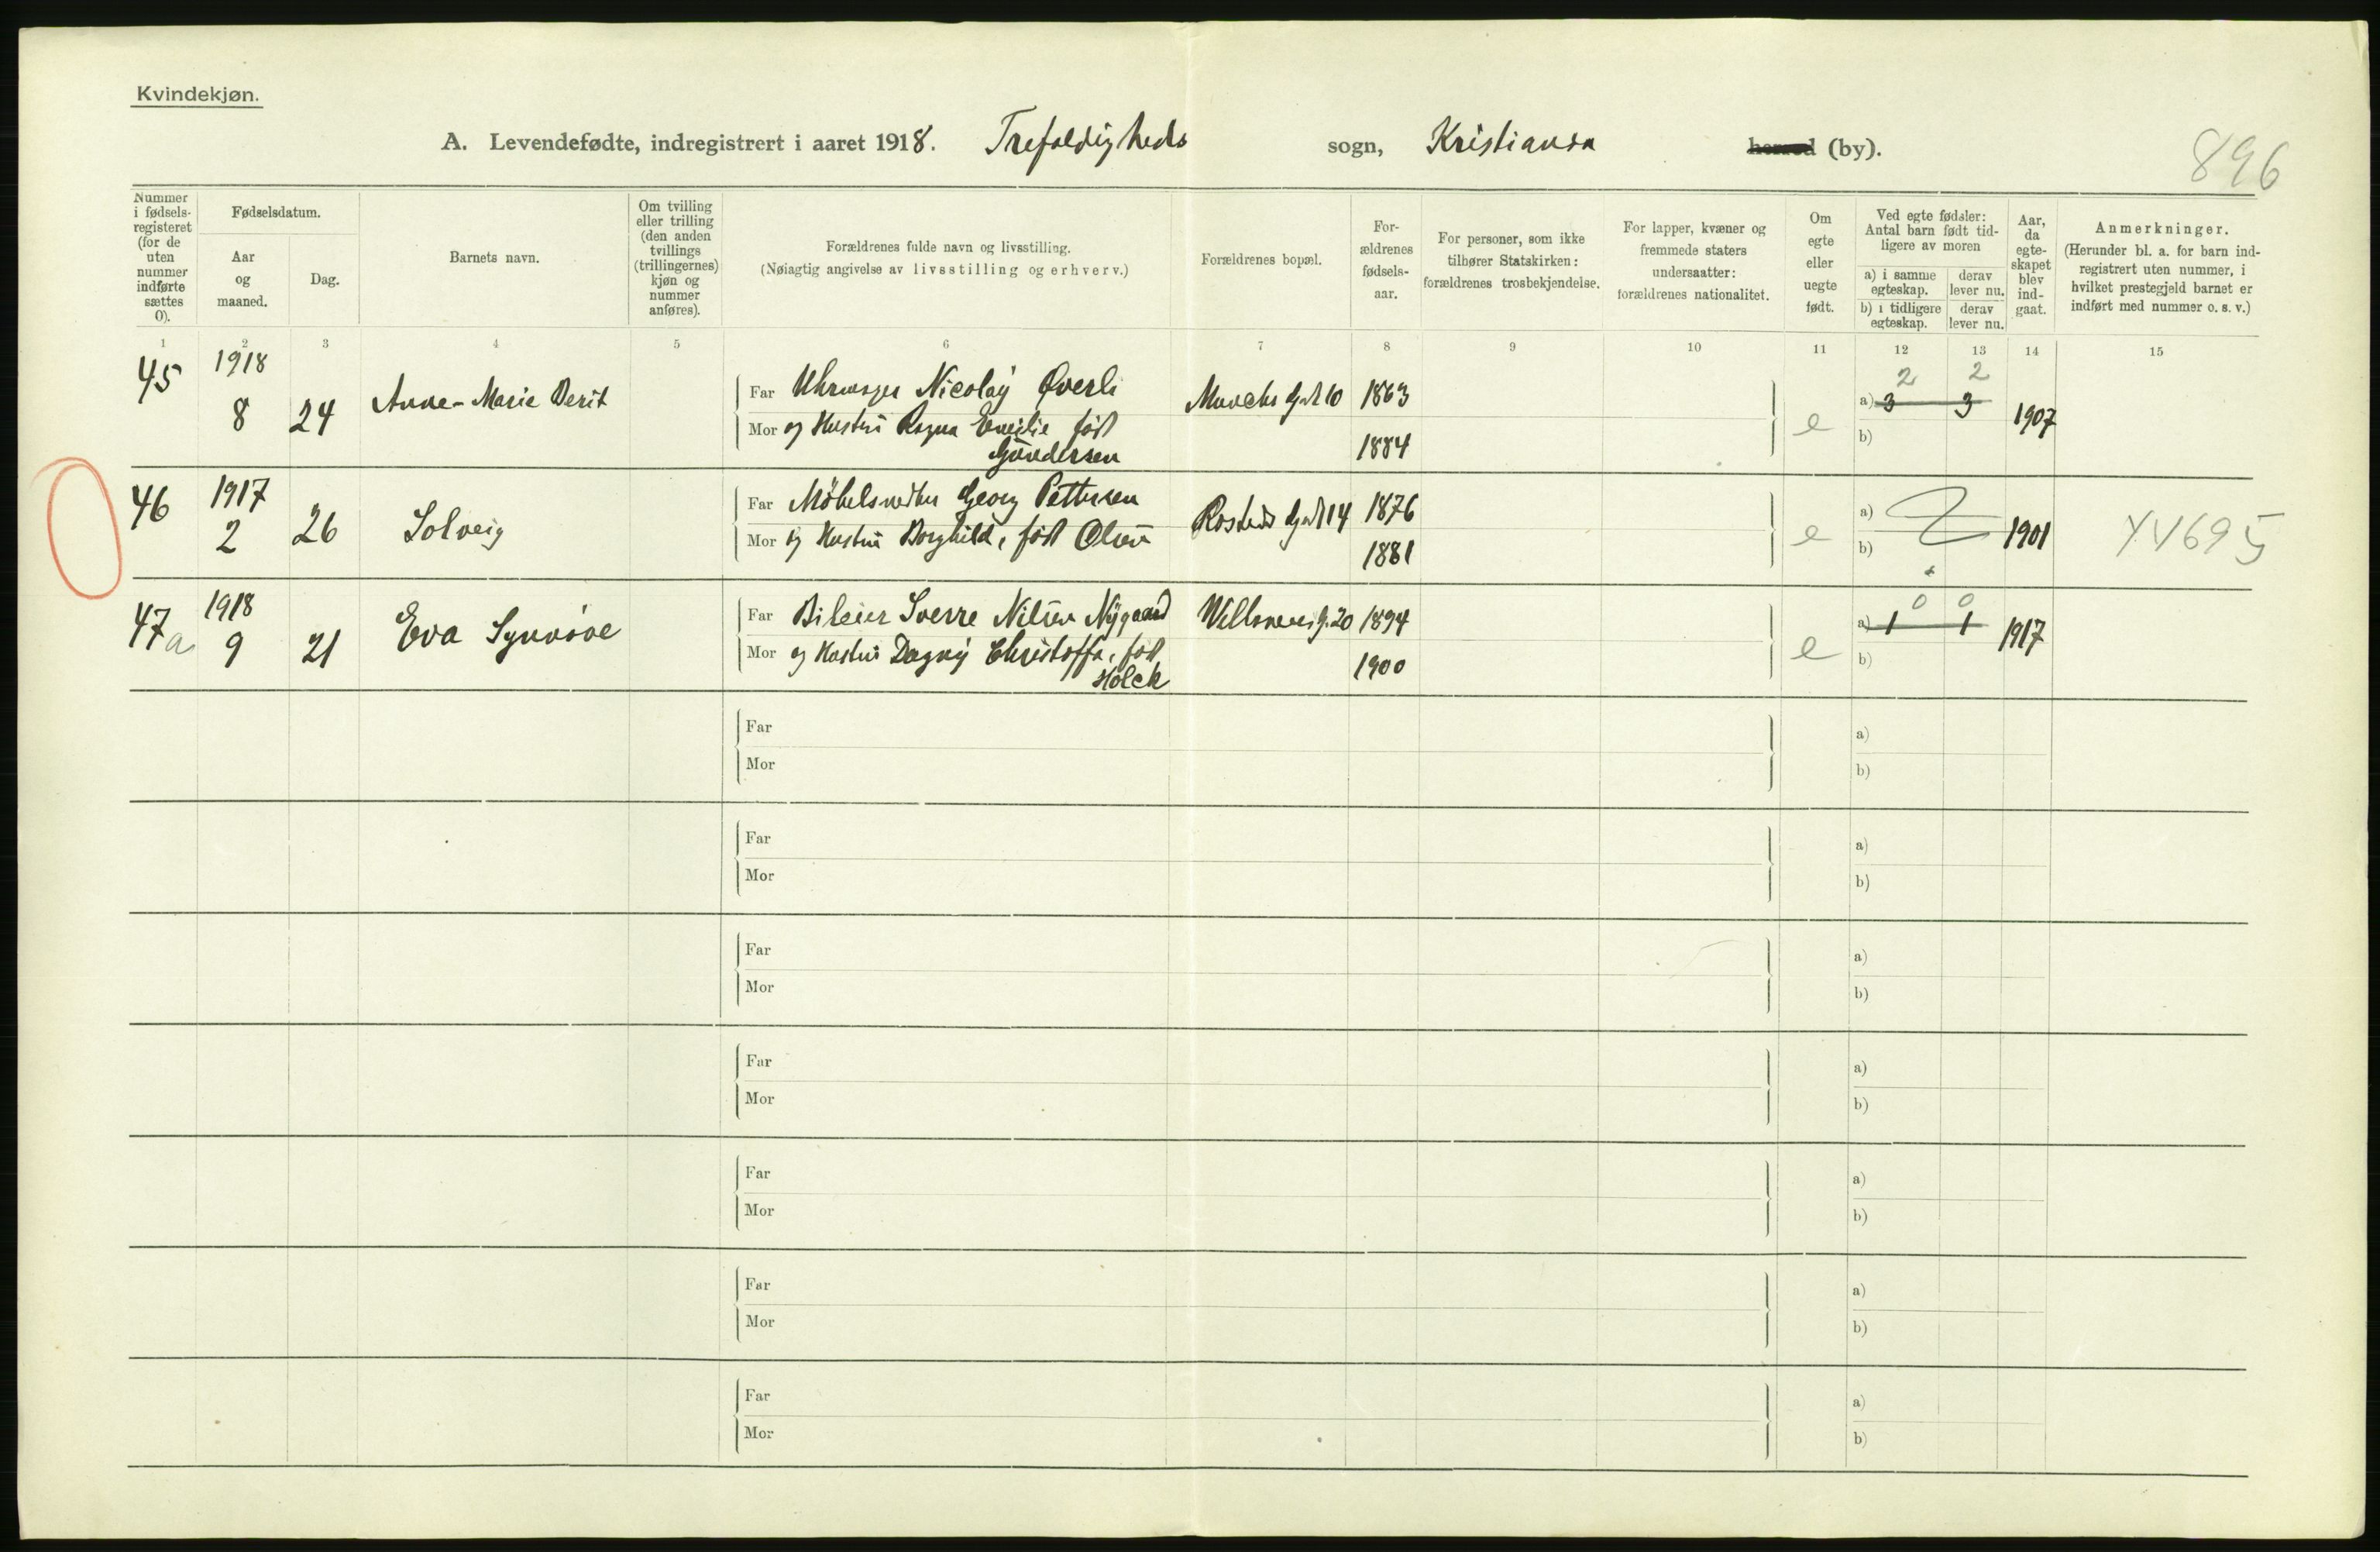 Kvindekjøn.
A. Levendefødte, indregistrert i aaret 1918. Trefoldigheds sogn, Kristiania herred (by).
896
Nummer i fødselsregisteret (for de uten nummer indførte sættes 0).
Fødselsdatum.
Aar og maaned.
Dag.
Barnets navn.
Om tvilling eller trilling (den anden tvillings (trillingernes) kjøn og nummer anføres).
Forældrenes fulde navn og livsstilling.
(Nøiagtig angivelse av livsstilling og erhverv.)
Forældrenes bopæl.
Forældrenes fødselsaar.
For personer, som ikke tilhører Statskirken: forældrenes trosbekjendelse.
For lapper, kvæner og fremmede staters undersaatter: forældrenes nationalitet.
Om egte eller uegte født.
Ved egte fødsler: Antal barn født tidligere av moren
a) i samme egteskap. derav lever nu.
b) i tidligere egteskap. derav lever nu.
Aar, da egteskapet blev indgaat.
Anmerkninger.
(Herunder bl. a. for barn indregistrert uten nummer, i hvilket prestegjeld barnet er indført med nummer o. s. v.)
1 2 3 4 5 6 7 8 9 10 11 12 13 14 15
45 1918 8 24 Anne-Marie Berit
Far Nicolay Øverli
Mor og Hustru Ragna Emilie født
Gundersen
Munchs Gt 10 1863
1884
e a) 3 3 2 2 b) 1907
46 1917 2 26 Solveig
Far Georg Pettersen
Mor og Hustru Borghild, født Olsen
Rosteds Gt 14 1876
1881
e a) b) 1901 44695
47a 1918 9 21 Eva Synnöve
Far Bileier Sverre Nilsen Nygaard
Mor og Hustru Dagny Christoffa, født
Holck
20 1894
1900
e a) 1 1 0 0 b) 1917
Far a)
Mor b)
Far a)
Mor b)
Far a)
Mor b)
Far a)
Mor b)
Far a)
Mor b)
Far a)
Mor b)
Far a)
Mor b)